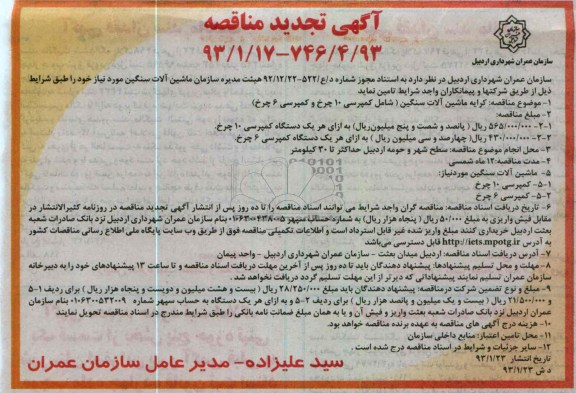 آگهی تجدید مناقصه
۹۳/۱/۱۷-۷۴۶/۴/۹۳
سازمان عمران شهرداری اردبیل
سازمان عمران شهرداری اردبیل در نظر دارد به استناد مجوز شماره د/ع/۵۲۲-۹۲/۱۲/۲۲ هیئت مدیره سازمان ماشین آلات سنگین مورد نیاز خود را طبق شرایط
ذیل از طریق شرکتها و پیمانکاران واجد شرایط تامین نماید
۱- موضوع مناقصه: کرایه ماشین آلات سنگین ( شامل کمپرسی ۱۰ چرخ و کمپرسی ۶ چرخ)
۲- مبلغ مناقصه:
۲-۱- ۵۶۵/۰۰۰/۰۰۰ ریال ( پانصد و شصت و پنج میلیون ریال) به ازای هر یک دستگاه کمپرسی ۱۰ چرخ.
۲-۲- ۴۳۰/۰۰۰/۰۰۰ ریال( چهارصد و سی میلیون ریال ) به ازای هر یک دستگاه کمپرسی ۶ چرخ.
۳- محل انجام موضوع مناقصه: سطح شهر و حومه اردبیل حداکثر تا ۳۰ کیلومتر
۴- مدت مناقصه: ۱۲ ماه شمسی
۵- ماشین آلات سنگین موردنیاز:
۵-۱- کمپرسی ۱۰ چرخ
۵-۲- کمپرسی ۶ چرخ
۶- تاریخ دریافت اسناد مناقصه: مناقصه گران واجد شرایط می توانند اسناد مناقصه را تا ده روز پس از انتشار آگهی تجدید مناقصه در روزنامه کثیرالانتشار در
مقابل فیش واریزی به مبلغ ۵۰/۰۰۰ ریال ( پنجاه هزار ریال) به شماره حساب سپهر ۰۱۰۶۳۰۰۴۳۸۰۰۵ بنام سازمان عمران شهرداری اردبیل نزد بانک صادرات شعبه
بعثت اردبیل خریداری کنند مبلغ واریز شده غیر قابل استرداد است و اطلاعات تکمیلی مناقصه فوق از طریق وب سایت پایگاه ملی اطلاع رسانی مناقصات کشور
به آدرس http://iets.mpotg.ir قابل دسترسی می‌باشد
۷- آدرس دریافت اسناد مناقصه: اردبیل میدان بعثت - سازمان عمران شهرداری اردبیل - واحد پیمان
۸- مهلت و محل تسلیم پیشنهادها: پیشنهاد دهندگان باید تا ده روز پس از آخرین مهلت دریافت اسناد مناقصه و تا ساعت ۱۳ پیشنهادهای خود را به دبیرخانه
سازمان عمران تسلیم نمایند پیشنهاداتی که دیرتر از این مهلت تسلیم گردد دریافت نخواهد شد.
۹- مبلغ و نوع تضمین شرکت درمناقصه: پیشنهاد دهندگان باید مبلغ ۲۸/۲۵۰/۰۰۰ ریال ( بیست و هشت میلیون و دویست و پنجاه هزار ریال ) برای ردیف ۱-۵
و ۲۱/۵۰۰/۰۰۰ ریال ( بیست و یک میلیون و پانصد هزار ریال ) برای ردیف ۲-۵ و به ازای هر یک دستگاه به حساب سپهر شماره ۰۱۰۶۳۰۰۵۳۲۰۰۹ بنام سازمان
عمران اردبیل نزد بانک صادرات شعبه بعثت واریز و فیش آن و یا به همان مبلغ ضمانت نامه بانکی را طبق شرایط مندرج در اسناد مناقصه تحویل نمایند
۱۰- هزینه درج آگهی های مناقصه به عهده برنده مناقصه خواهد بود.
۱۱- محل تامین اعتبار: منابع داخلی سازمان
۱۲- سایر جزئیات و شرایط در اسناد مناقصه درج شده است .
تاریخ انتشار ۹۳/۱/۲۳
د ش ۹۳/۱/۲۳
سید علیزاده- مدیر عامل سازمان عمران